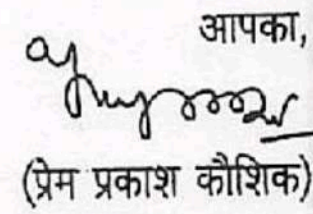 आपका,
(प्रेम प्रकाश कौशिक)